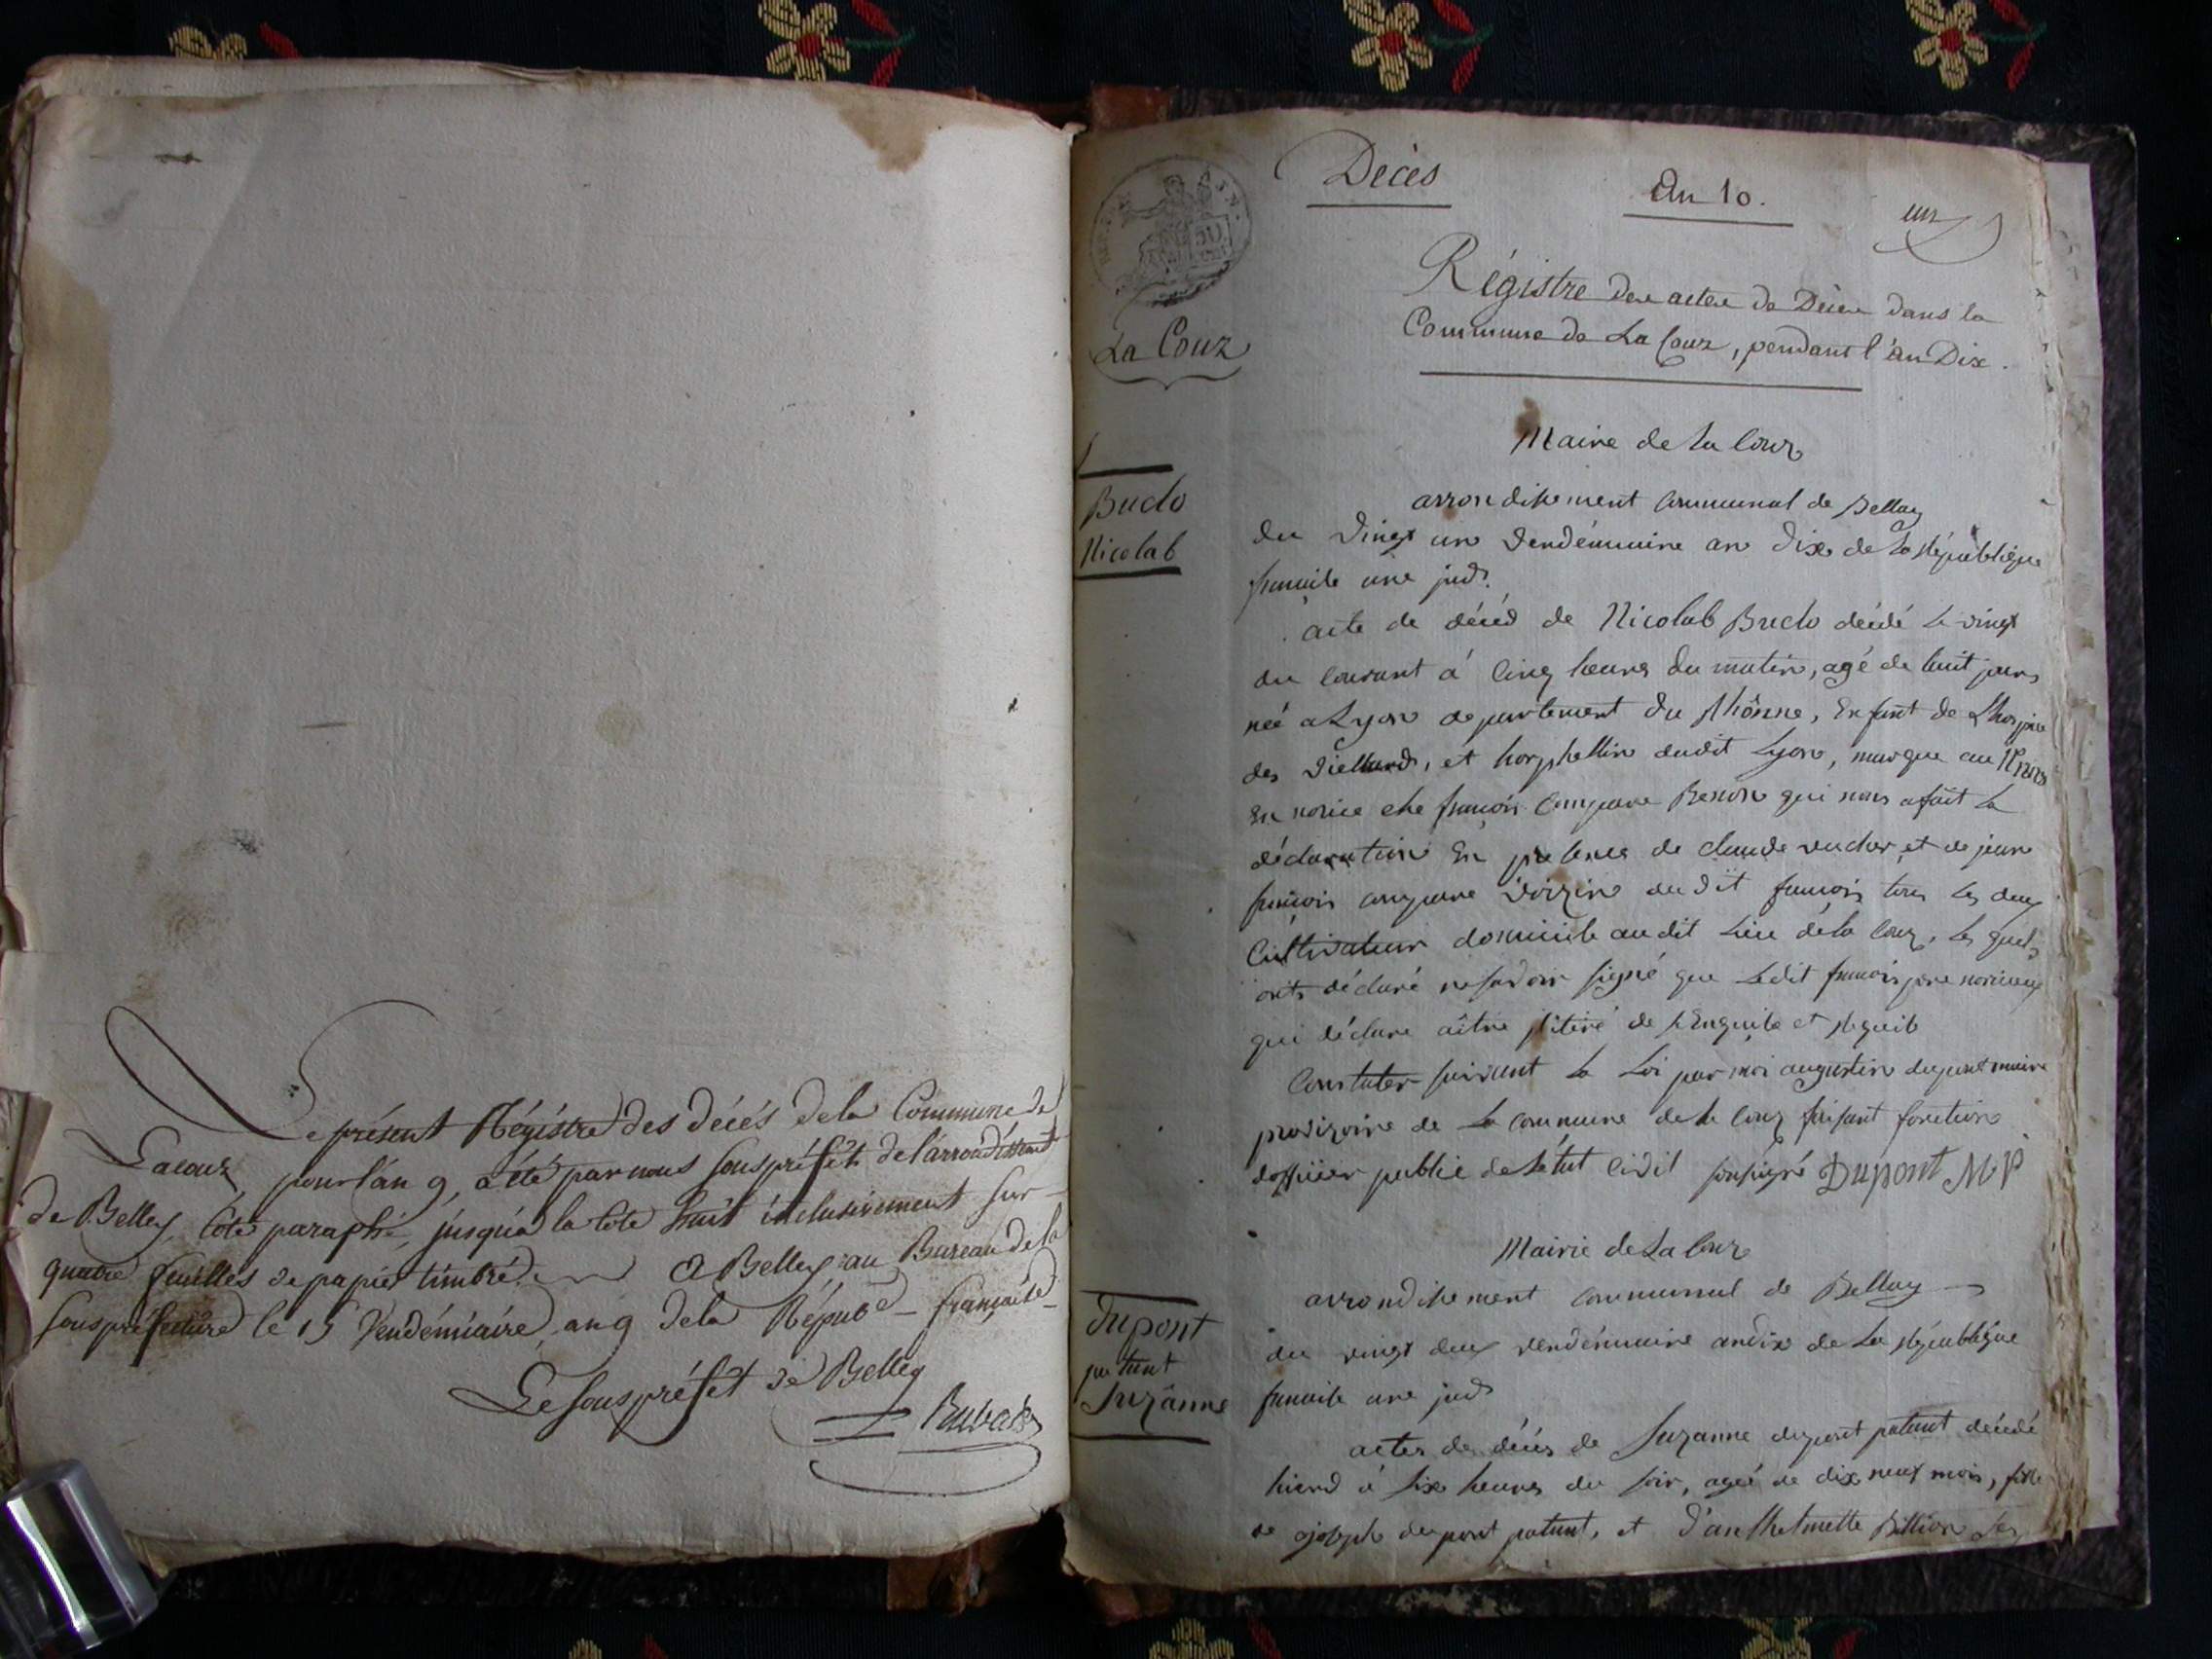 Le présent Régistre des décés de la Commune de
Lacouz pour l'an 9, a été par nous sous préfét de l'arrondissmt
de Belley, coté paraphé, jusqu'a la cote huit inclusivement sur
quatre feuilles de papier timbré. A Belley au Bureau de la
souspréfecture le 15 Vendémiaire an 9 dela Répub française
Le souspréfét de Belley
Décès
An 10.
un
La Couz
Régistre des actes de Décès dans la
Commune de La Couz, pendant l'an Dix.
Maire de la Couz
arrondissement communal de Belley
Buclo
Nicolas
du vingt un vendémiaire an dix de la République
française une jud.
acte de décéd de Nicolas Buclo décédé le vingt
du courant à cinq heures du matin, agé de huit jours
née a Lyon departement du Rhônne, Enfant de Lhospice
des vieillards, et horphellin dudit Lyon, marque au
En norice ché françois compare qui nous a fait la
déclaration En presence de claude vucher et de jean
françois compare voizin du dit françois tous les deux
Cultivateur domicile audit Lieu de la Couz, les quels
onts déclaré ne savoir signé que Ledit françois pere noricieux
qui déclare aître de et
Constater suivant la Loi par moi augustin dupont maire
provizoire de la commune de la Couz faisant fonction
dofficier public de Létat Civil soussigné Dupont M P
Mairie de La Couz
arrondissement communal de Belley
dupont
patant
Suzânne
du vingt deux vendémiaire an dix de La République
française une jud
actes de décés de Suzanne dupont patant décédé
hierd à six heures du soir, ageé de dix neuf mois, fille
de Joseph dupont patant, et d'anthelmette Billion Ses